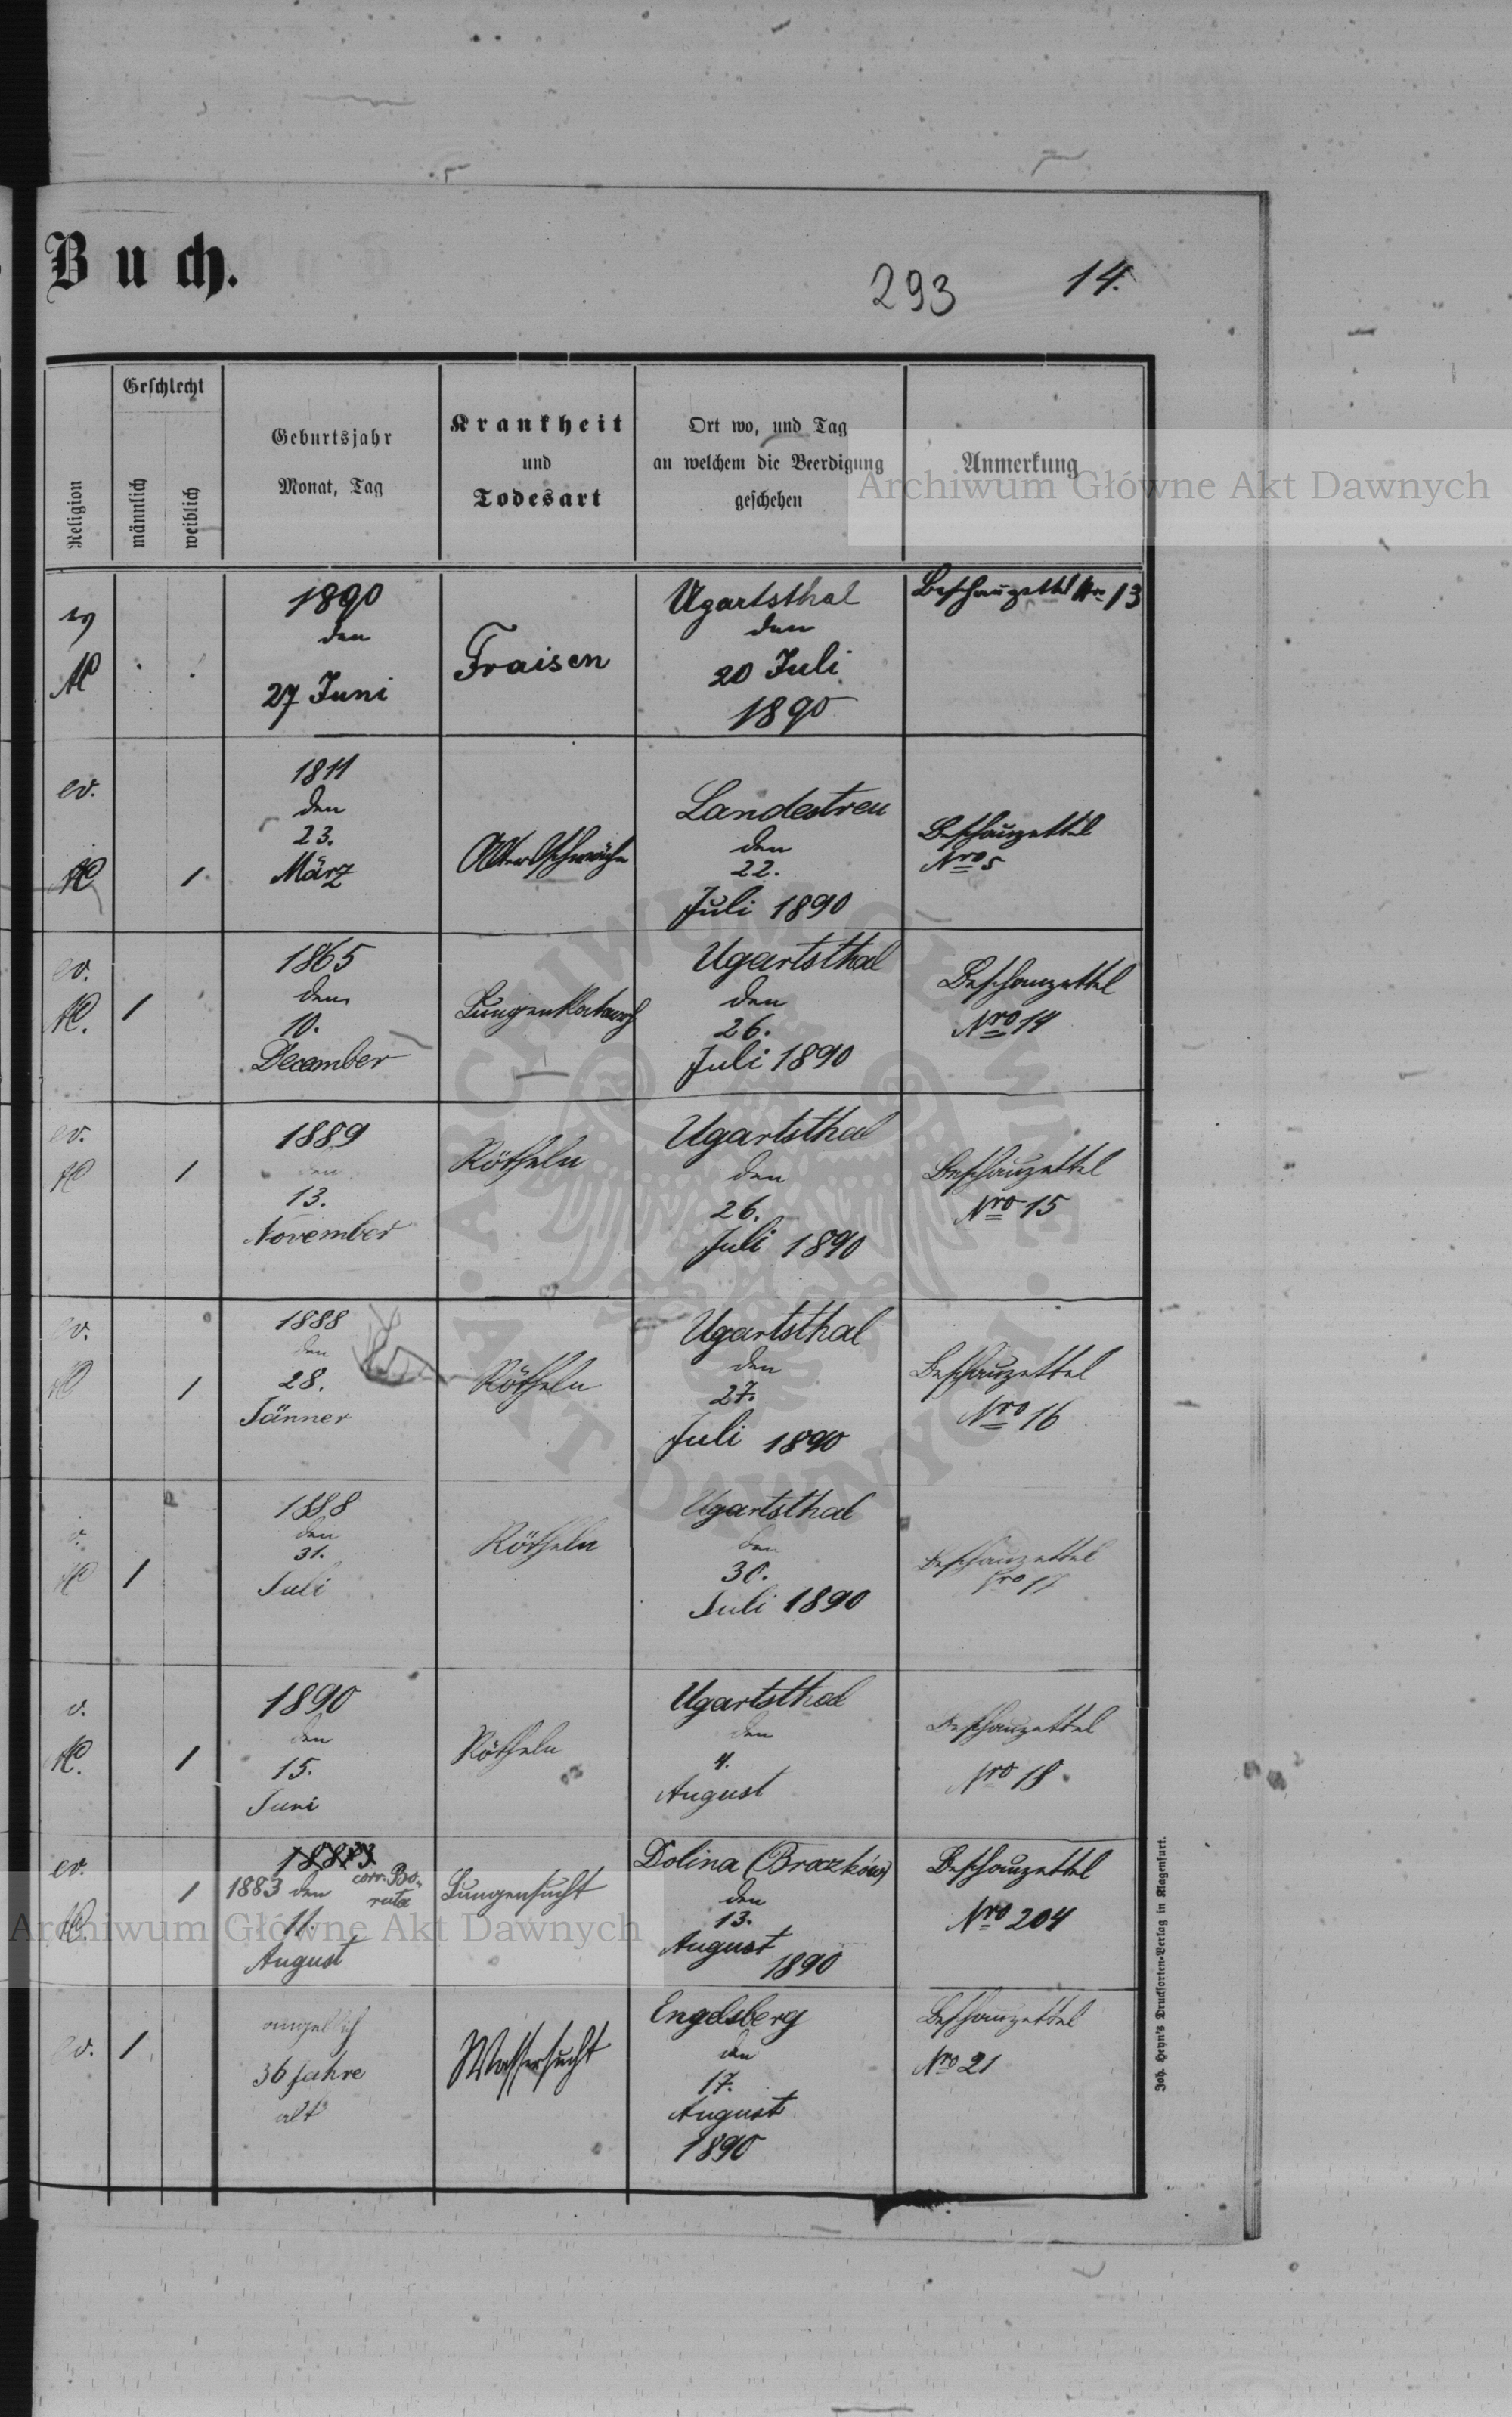 Buch.
293
14.
Religion
Geschlecht
männlich
weiblich
Geburtsjahr
Monat, Tag
Krankheit
und
Todesart
Ort wo, und Tag
an welchem die Beerdigung
geschehen
Anmerkung
Archiwum Główne Akt Dawnych
ev
AC
1890
den
27 Juni
Fraisen
Ugartsthal
den
20 Juli
1890
Beschauzettel Nro 13
ev.
AC
1
1811
den
23.
März
Altersschwäche
Landestreu
den
22.
Juli 1890
Beschauzettel
Nro 5
ev.
AC.
1
1865
den
10.
December
Lungenkatarrh
Ugartsthal
den
26.
Juli 1890
Beschauzettel
Nro 14
ev.
AC
1
1889
den
13.
November
Rötheln
Ugartsthal
den
26.
Juli 1890
Beschauzettel
Nro 15
ev.
AC
1
1888
den
28.
Jänner
Rötheln
Ugartsthal
den
27.
Juli 1890
Beschauzettel
Nro 16
v.
AC
1
1888
den
31.
Juli
Rötheln
Ugartsthal
den
30.
Juli 1890
Beschauzettel
Nro 17
v.
AC.
1
1890
den
15.
Juni
Rötheln
Ugartsthal
den
4.
August
Beschauzettel
Nro 18.
ev.
AC.
1
1883 den
corr. Bo-
ruta
11.
August
Lungensucht
Dolina (Broczków)
den
13.
August
1890
Beschauzettel
Nro 204
Archiwum Główne Akt Dawnych
ev.
1
angeblich
36 Jahre
alt
Wassersucht
Engelsberg
den
17.
August
1890
Beschauzettel
Nro 21
Joh. Heyn's Drucksorten-Verlag in Klagenfurt.
ARCHIWUM GŁÓWNE AKT DAWNYCH